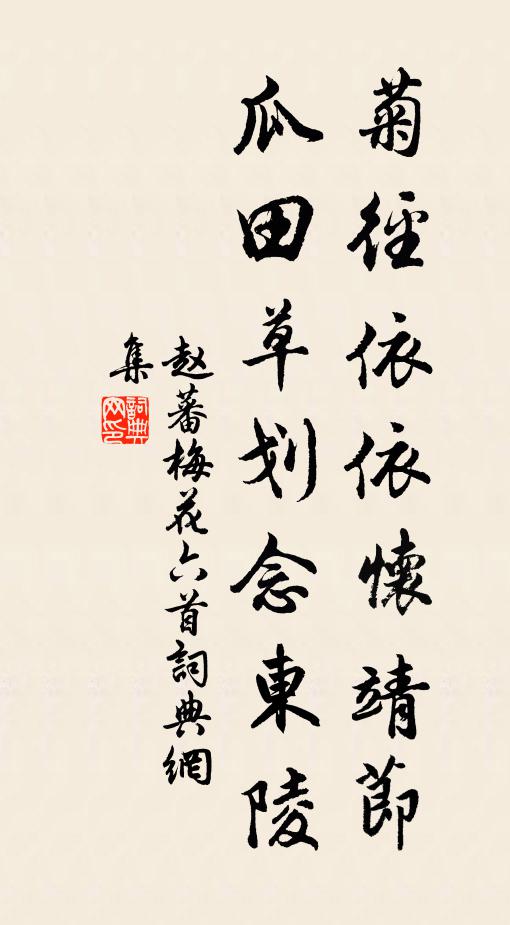 菊徑依依懷靖節
瓜田草划念東陵
赵蕃梅花六首詞典網
集
詞典
网印